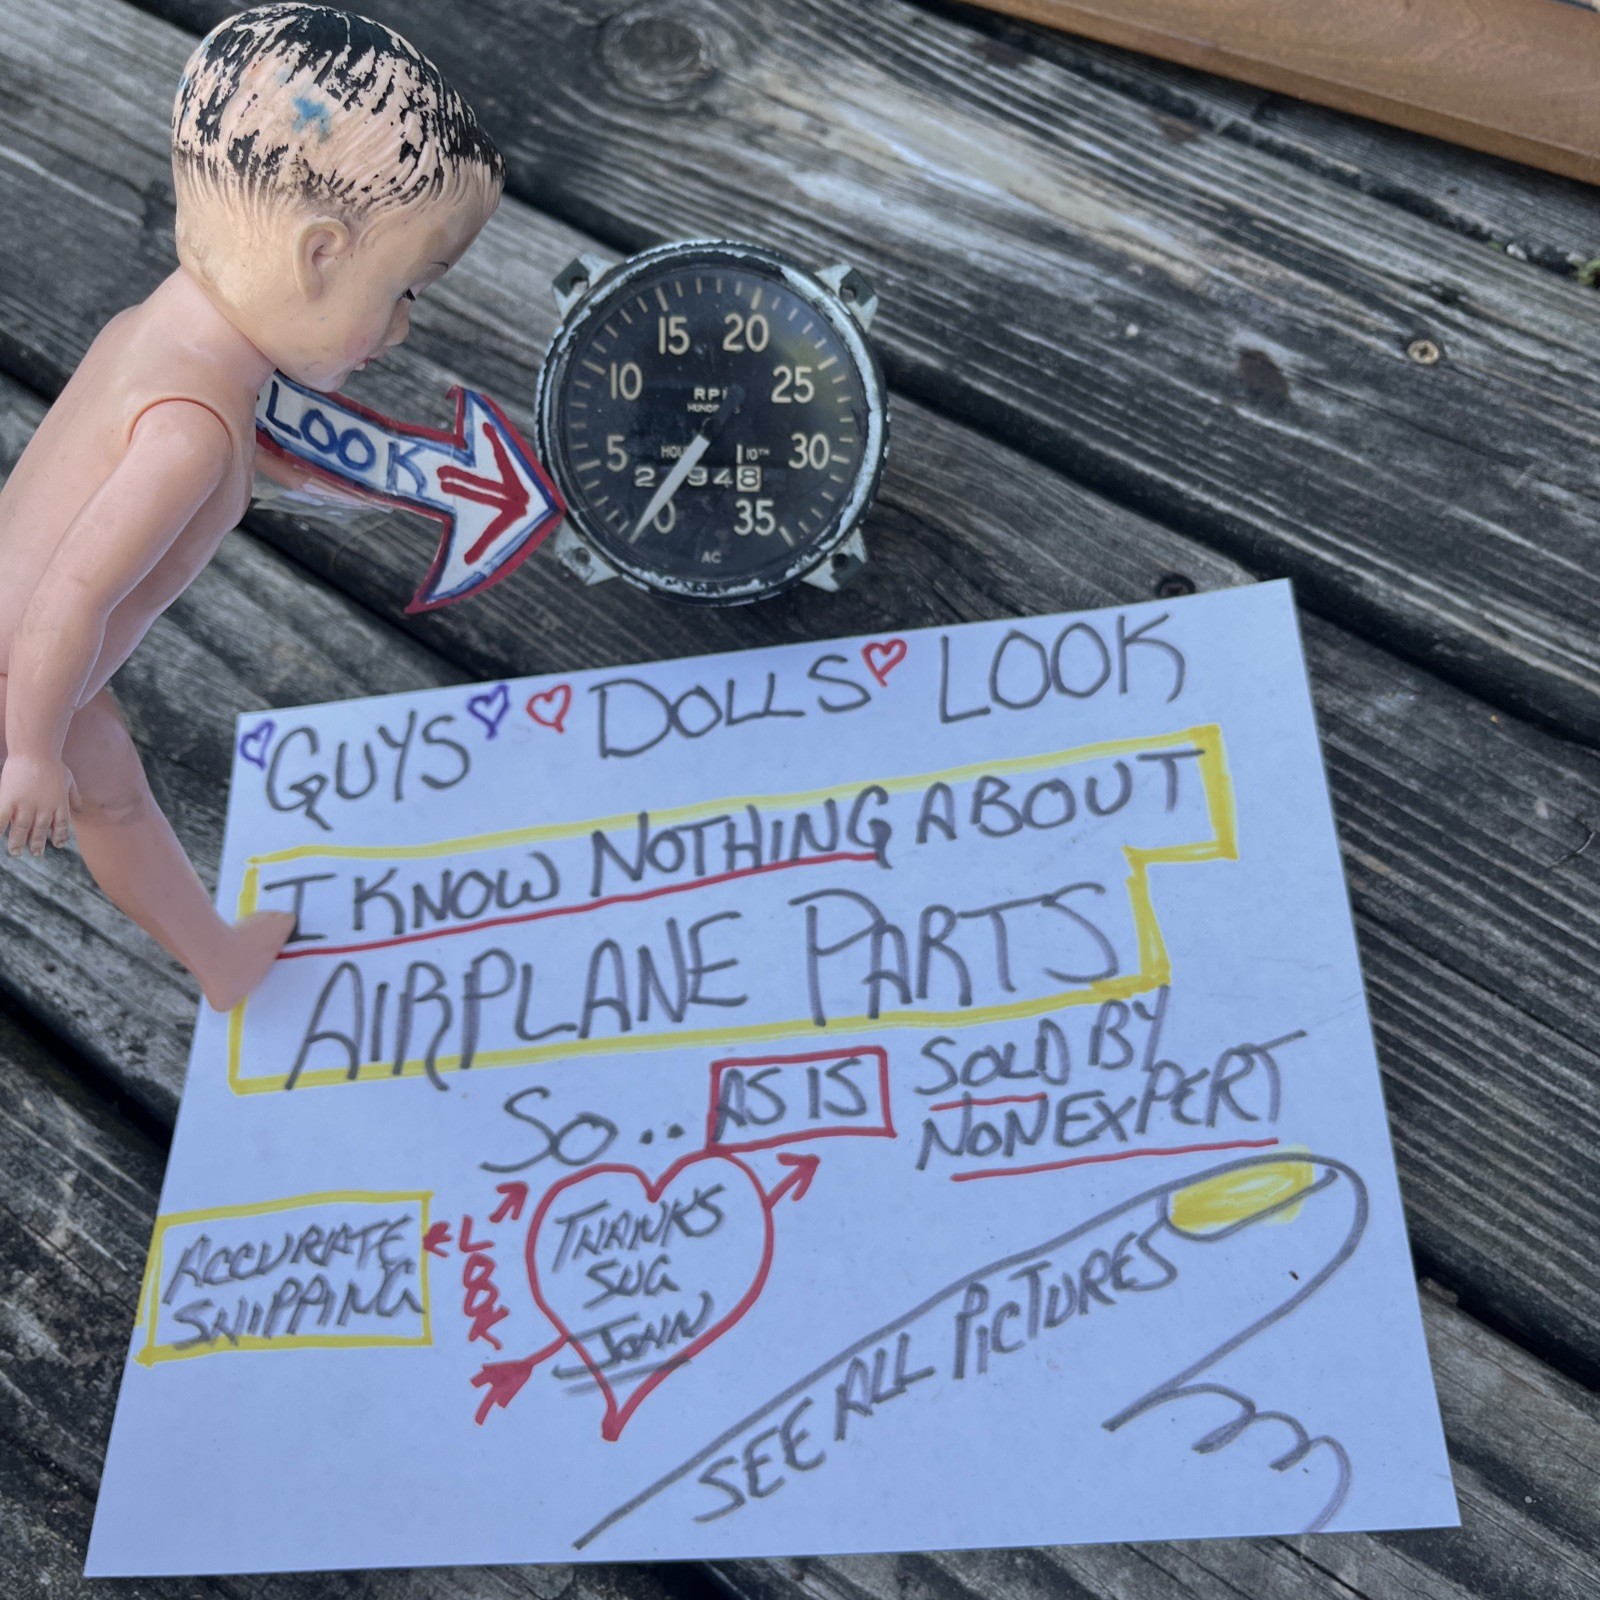 LOOK
15 20
10 25
5 30
0 35
RP
HUND
HOU 1 10TH
2 948
AC
GUYS DOLLS LOOK
I KNOW NOTHING ABOUT
AIRPLANE PARTS
SO.. AS IS
SOLD BY
NONEXPERT
ACCURATE
SHIPPING
LOOK
THANKS
SUG
JOHN
SEE ALL PICTURES